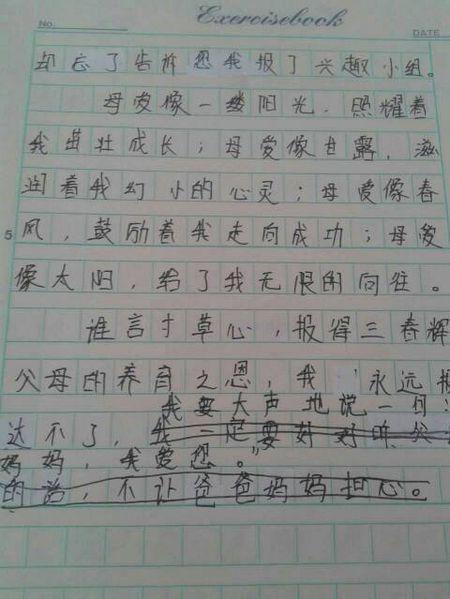 No.
Exercisebook
DATE
却忘了告诉您我报了兴趣小组。
母爱像一缕阳光,照耀着
我茁壮成长;母爱像甘露,滋
润着我幻小的心灵;母爱像春
5 风,鼓励着我走向成功;母爱
像太阳,给了我无限的向往。
谁言寸草心,报得三春辉
父母的养育之恩,我永远报
我要大声地说一句:
达不了,我一定要好好听父
妈妈,我爱您。”
的话,不让爸爸妈妈担心。